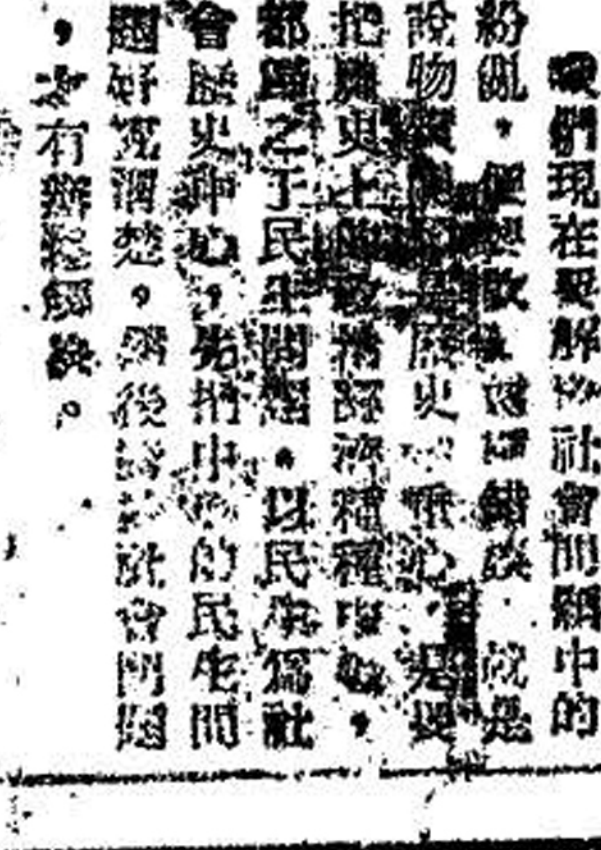 我們現在要解社會問題中的
紛亂,便要改錯誤.就是
說物是歷史重心,是要
把歷史上的經濟種種中心,
都歸之于民生問題,以民生爲社
會歷史中心,先把中心的民生問
題研究清楚,然後對於社會問題
,才有辦解決。